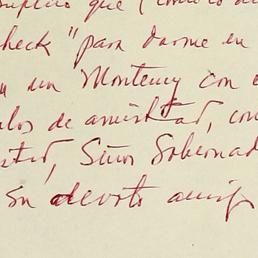 que (como
check" para darme en
un Monterrey con e
los de amistad, con
sted, Señor Gobernad
su devoto amigo